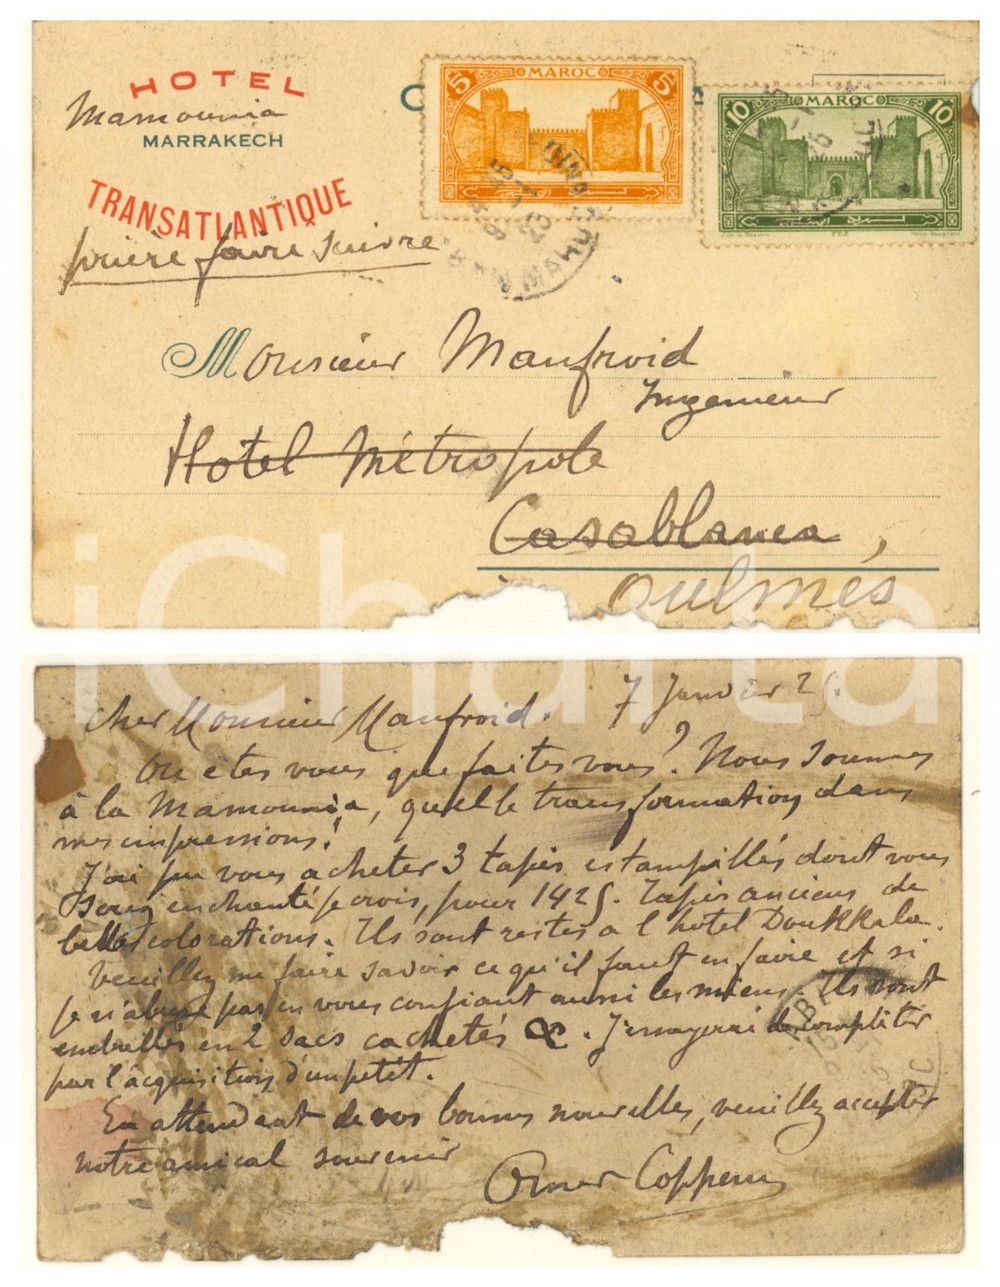 HOTEL
Mamounia
MARRAKECH
TRANSATLANTIQUE
prière faire suivre
5 MAROC 5
10 MAROC 10
Monsieur Manfroid
Ingenieur
Hotel Métropole
Casablanca,
Oulmés
iCharta
7 Janvier 25.
Cher Monsieur Manfroid.
Ou etes vous que faites vous? Nous sommes
à la Mamounia, quelle transformation dans
mes impressions!
J'ai pu vous acheter 3 tapis estampillés dont vous
serez enchanté je crois, pour 1425. Tapis anciens de
belles colorations. Ils sont restés a l'hotel Doukkala.
Veuillez me faire savoir ce qu'il faut en faire et si
je n'abuse pas en vous confiant aussi les miens. Ils sont
emballés en 2 sacs cachetés . J'essayerai de completer
par l'acquisition d'un petit.
En attendant de vos bonnes nouvelles, veuillez accepter
notre amical souvenir
Omer Coppens